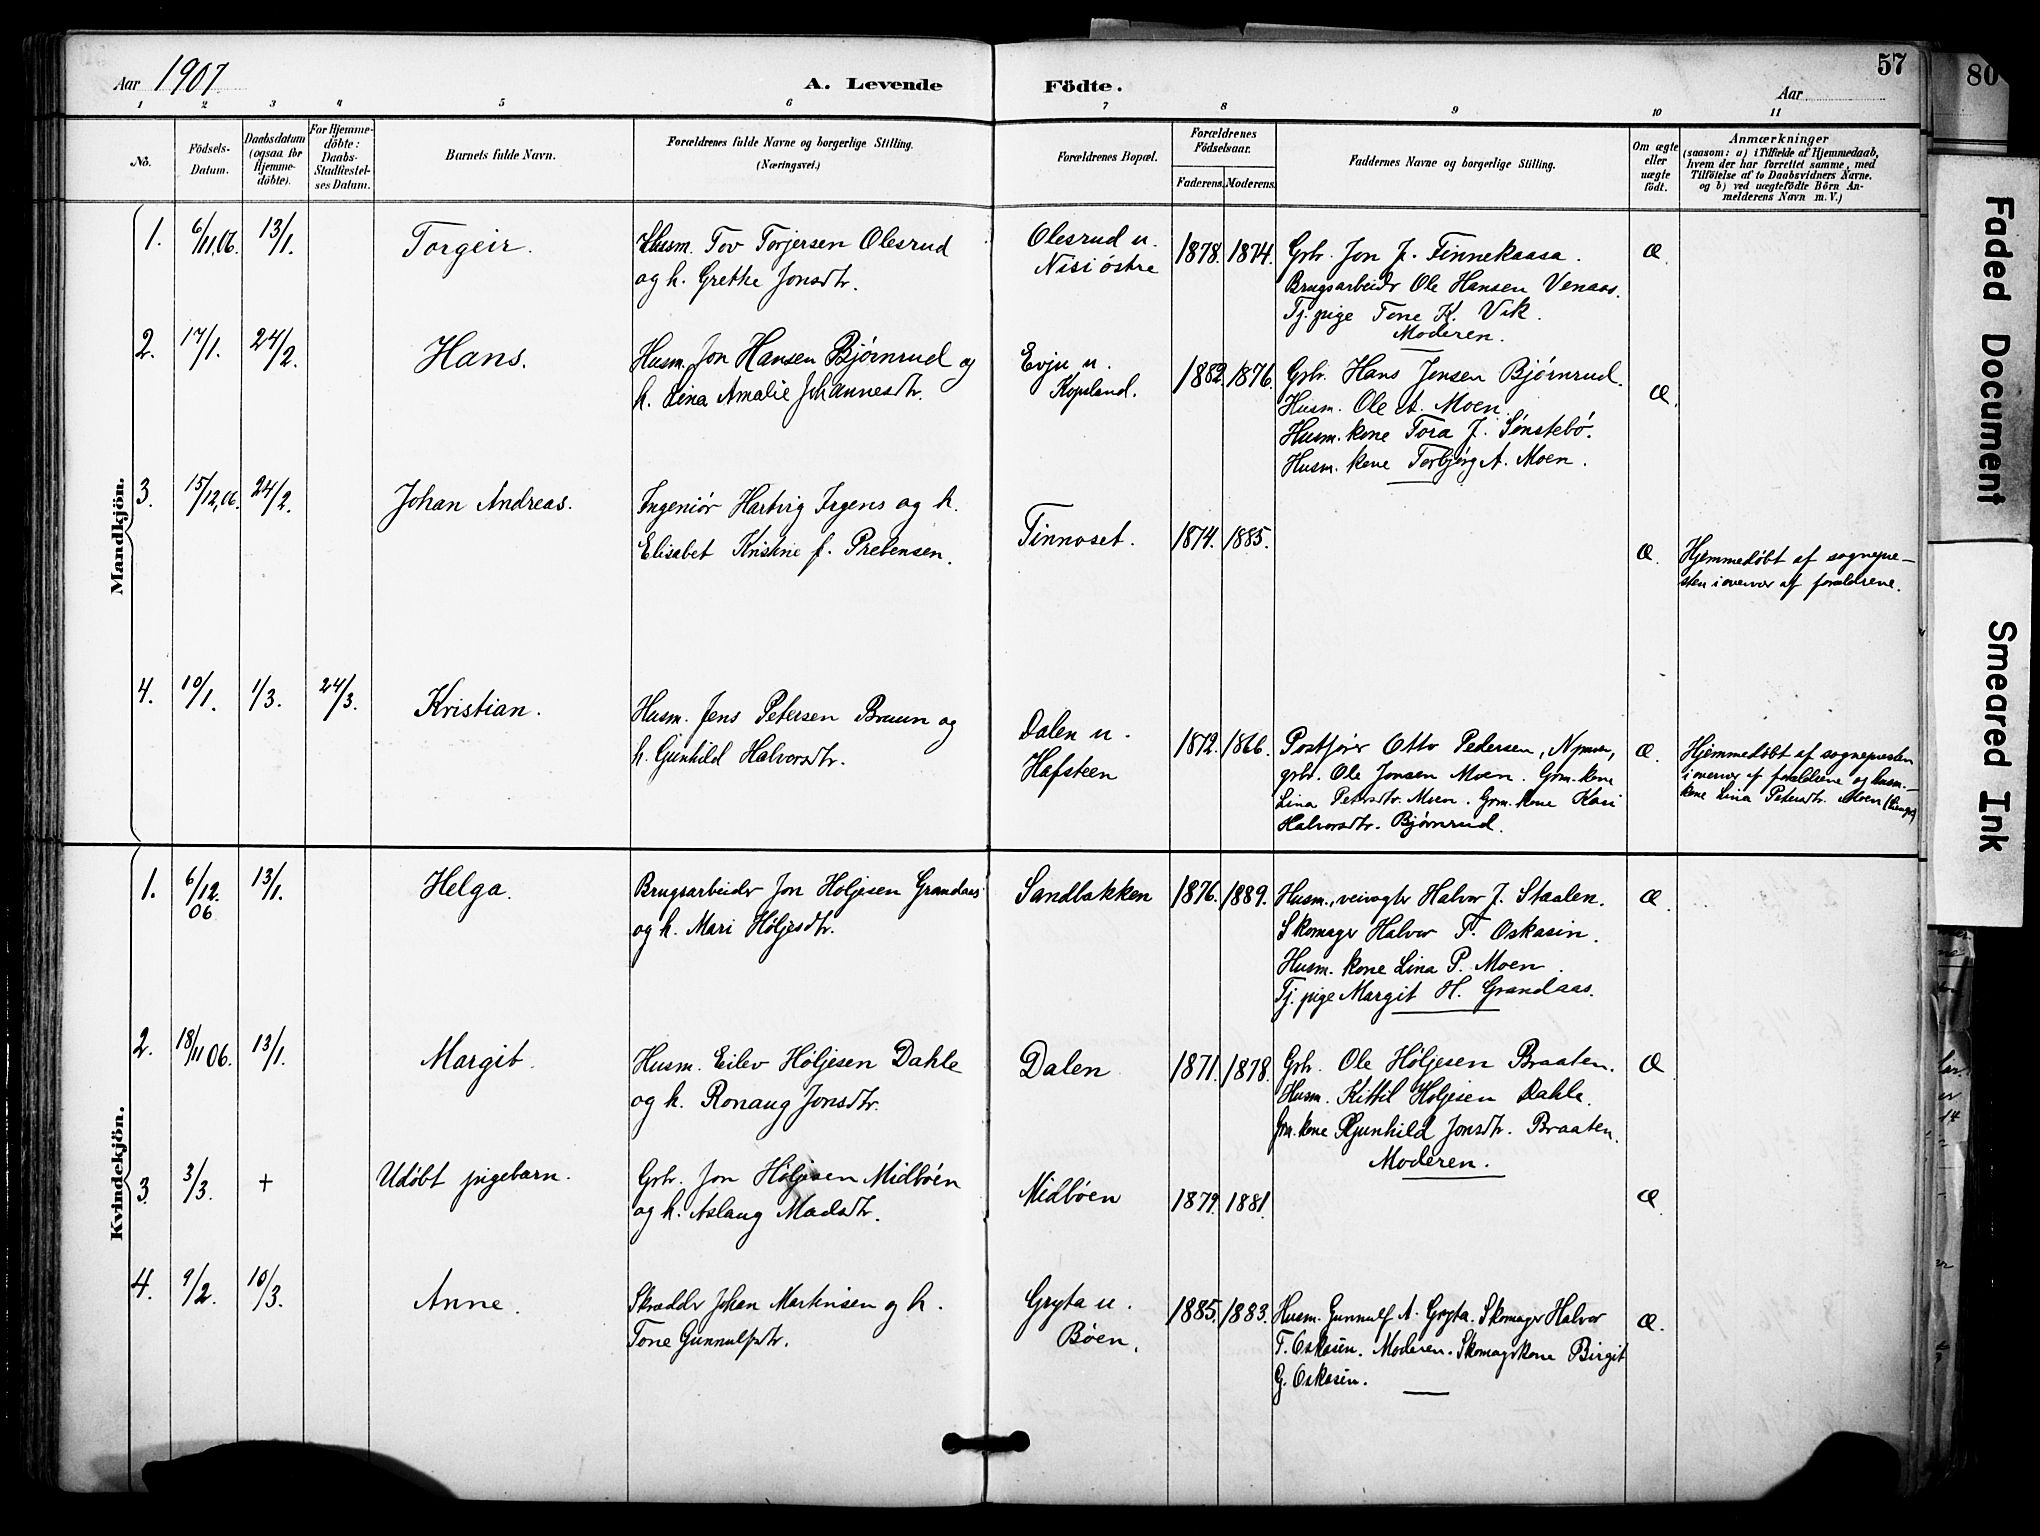 Aar 1907
A. Levende Födte.
57
80
Aar
1 2 3 4 5 6 7 8 9 10 11
No.
Födsels-
Datum.
Daabsdatum
(ogsaa for
Hjemme-
döbte).
For Hjemme-
döbte:
Daabs-
Stadfæstel-
ses Datum.
Barnets fulde Navn.
Forældrenes fulde Navne og borgerlige Stilling.
(Næringsvei.)
Forældrenes Bopæl.
Forældrenes
Födselsaar.
Faderens. Moderens.
Faddernes Navne og borgerlige Stilling.
Om ægte
eller
uægte
födt.
Anmærkninger
(saasom: a) i Tilfælde af Hjemmedaab,
hvem der har forrettet samme, med
Tilföielse af to Daabsvidners Navne.
og b) ved uægtefödte Börn An-
melderens Navn m. V.)
Mandkjön.
1. 6/11,06. 13/1. Torgeir.
Husm. Tov Torjersen Olesrud
og h. Grethe Jonsdtr.
Olesrud u.
Nisi østre
1878. 1874.
Grbr. Jon J. Finnekaasa.
Brugsarbeidr Ole Hansen Venaas.
Tj. pige Tone K. Vik.
Moderen.
Æ.
2. 17/1. 24/2. Hans.
Husm. Jon Hansen Bjørnrud og
h. Lina Amalie Johannesdtr.
Evju u.
Kopsland.
1882. 1876.
Grbr. Hans Jensen Bjørnrud.
Husm. Ole A. Moen.
Husm. kone Tora J. Sønstebø.
Husm. kone Torbjørg A. Moen.
Æ.
3. 15/12,06. 24/2. Johan Andreas.
Ingeniør Hartvig Irgens og h.
Elisabet Kristine f. Prebensen.
Tinnoset.
1874. 1885.
Æ.
Hjemmedøbt af sognepre-
sten i overvær af forældrene.
4. 10/1. 1/3. 24/3. Kristian.
Husm. Jens Petersen Bruun og
h. Gunhild Halvorsdtr.
Dalen u.
Hafsteen
1872. 1866.
Postfører Otto Pedersen, Nymoen,
grbr. Ole Jonsen Moen. Grm. kone
Lina Petersdtr. Moen. Grm. kone Kari
Halvorsdtr. Bjørnrud.
Æ.
Hjemmedøbt af sognepresten
i overvær af forældrene og husm.-
kone Lina Petersdtr. Moen
Kvindekjön.
1. 6/12. 06 13/1. Helga.
Brugsarbeider Jon Høljesen Grandaas
og h. Mari Høljesdtr.
Sandbakken
1876. 1889.
Husm., veivogter Halvor J. Staalen.
Skomager Halvor T. Oskasin.
Husm. kone Lina P. Moen.
Tj. pige Margit H. Grandaas.
Æ.
2. 18/11 06. 13/1. Margit.
Husm. Eilev Høljesen Dahle
og h. Ronaug Jonsdtr.
Dalen
1871. 1878.
Grbr. Ole Høljesen Braaten.
Husm. Kittil Høljesen Dahle.
Grm. kone Gunhild Jonsdtr. Braaten.
Moderen.
Æ
3. 3/3. + Udøbt pigebarn.
Grbr. Jon Høljesen Midbøen
og h. Aslaug Madsdtr.
Midbøen
1879. 1881.
Æ.
4. 9/2. 10/3. Anne.
Skrædder Johan Martinsen og h.
Tone Gunnulfsdtr.
Gryta u.
Bøen.
1885. 1883.
Husm. Gunnulf A. Gryta. Skomager Halvor
T. Oskasin. Moderen. Skomagerkone Birgit
G. Oskasin.
Æ.
Faded Document
Smeared Ink